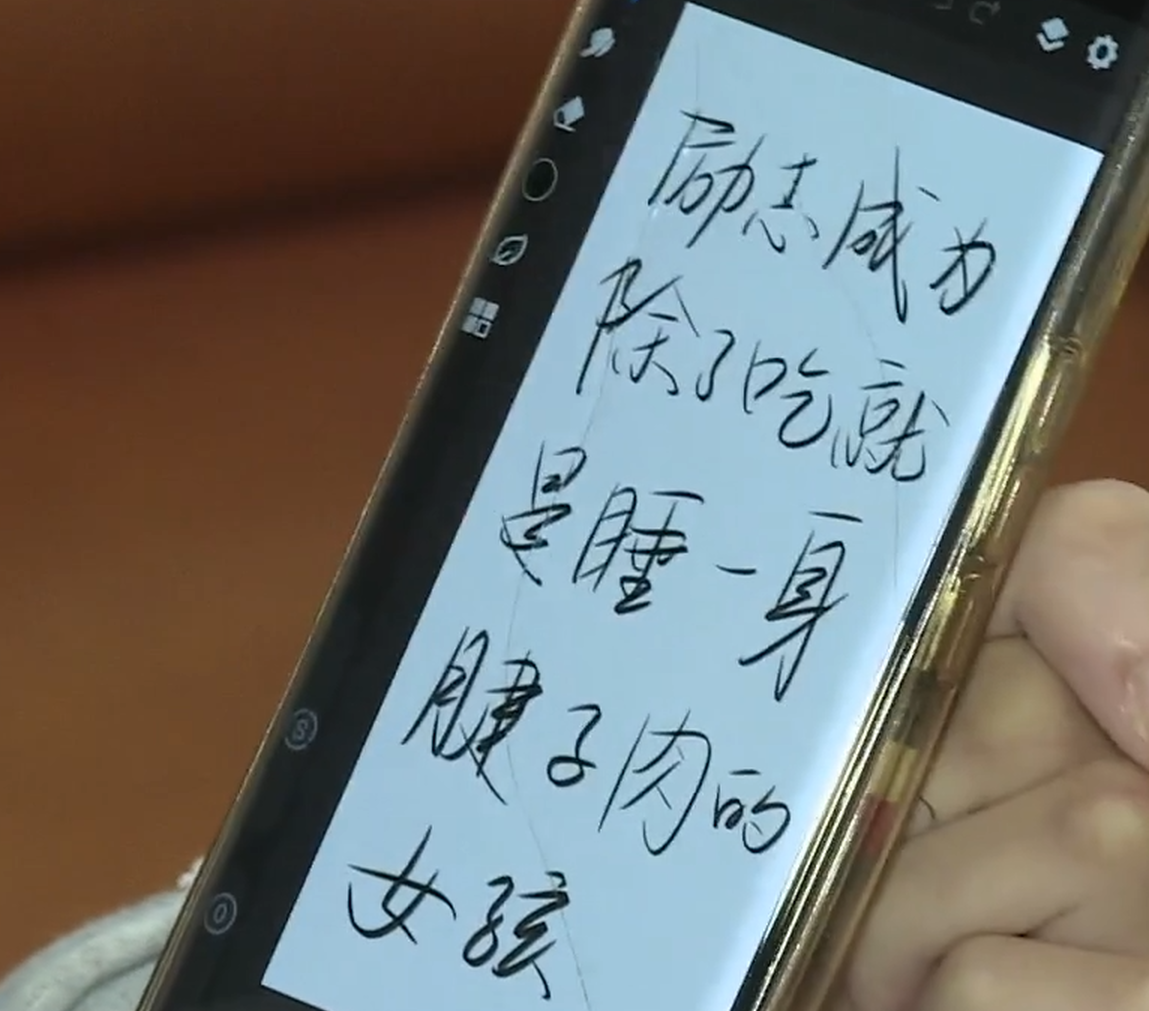 励志成为
除了吃就
是睡一身
腱子肉的
女孩